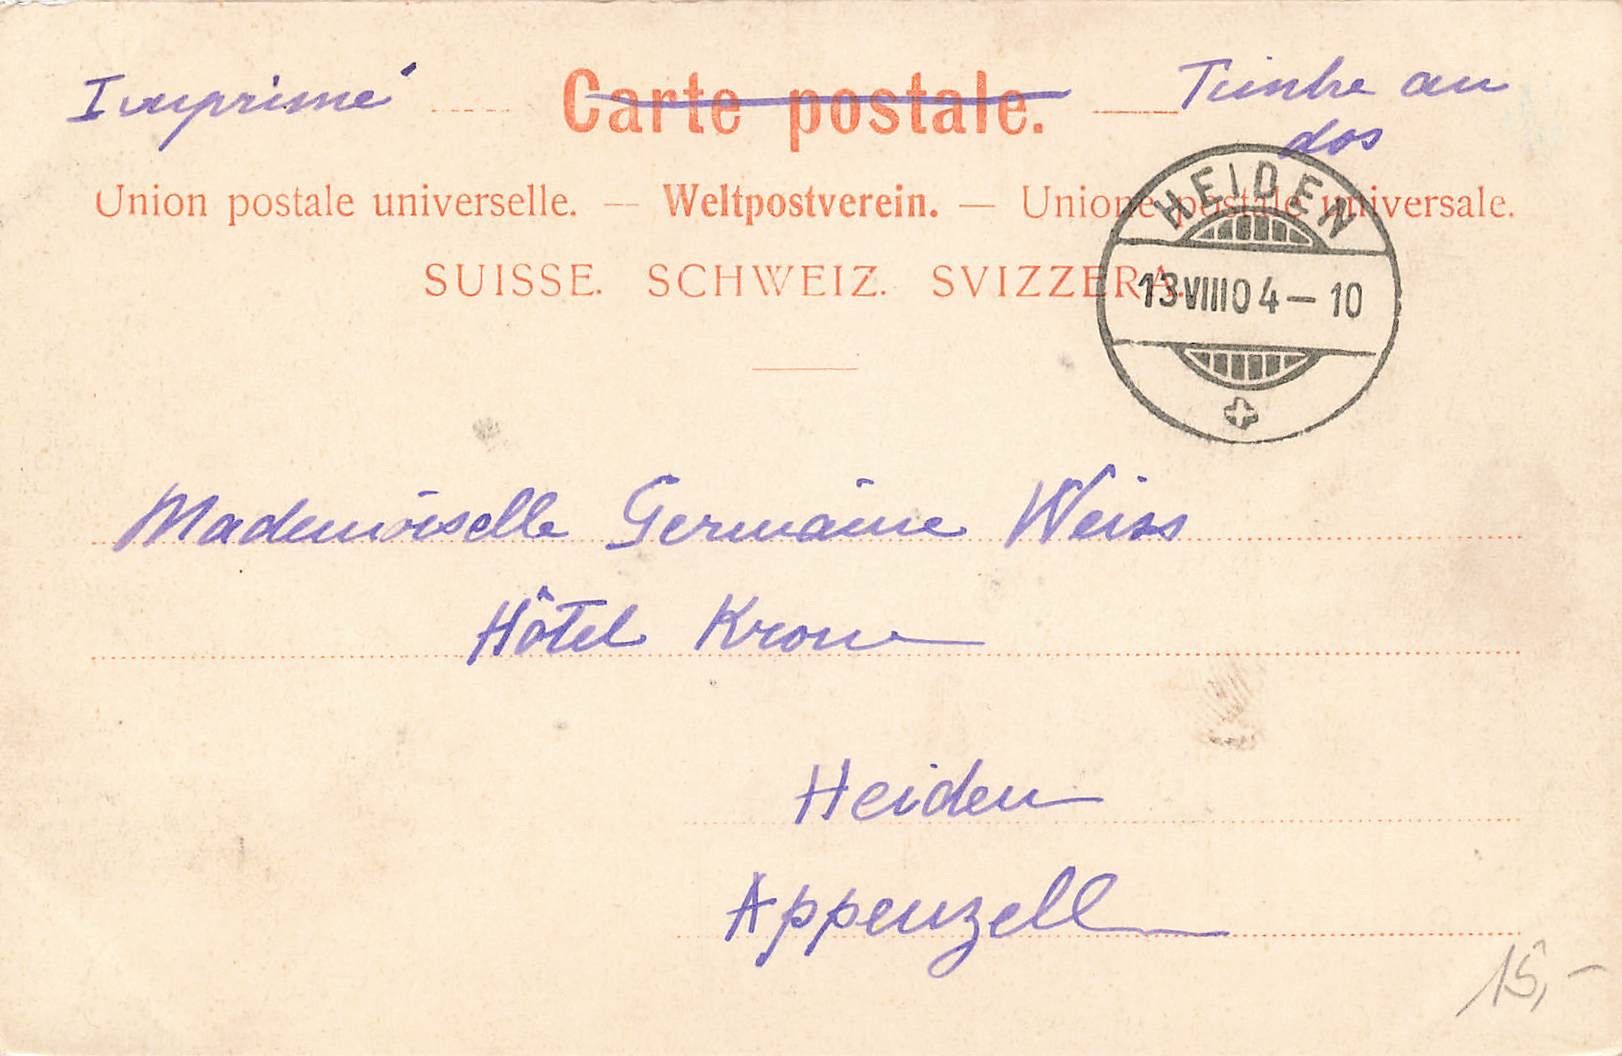 Imprimé
Carte postale.
Timbre au
dos
Union postale universelle. — Weltpostverein. — Unione postale universale.
SUISSE. SCHWEIZ. SVIZZERA.
HEIDEN
13 VIII 04 – 10
Mademoiselle Germaine Weiss
Hôtel Krone
Heiden
Appenzell
15,-